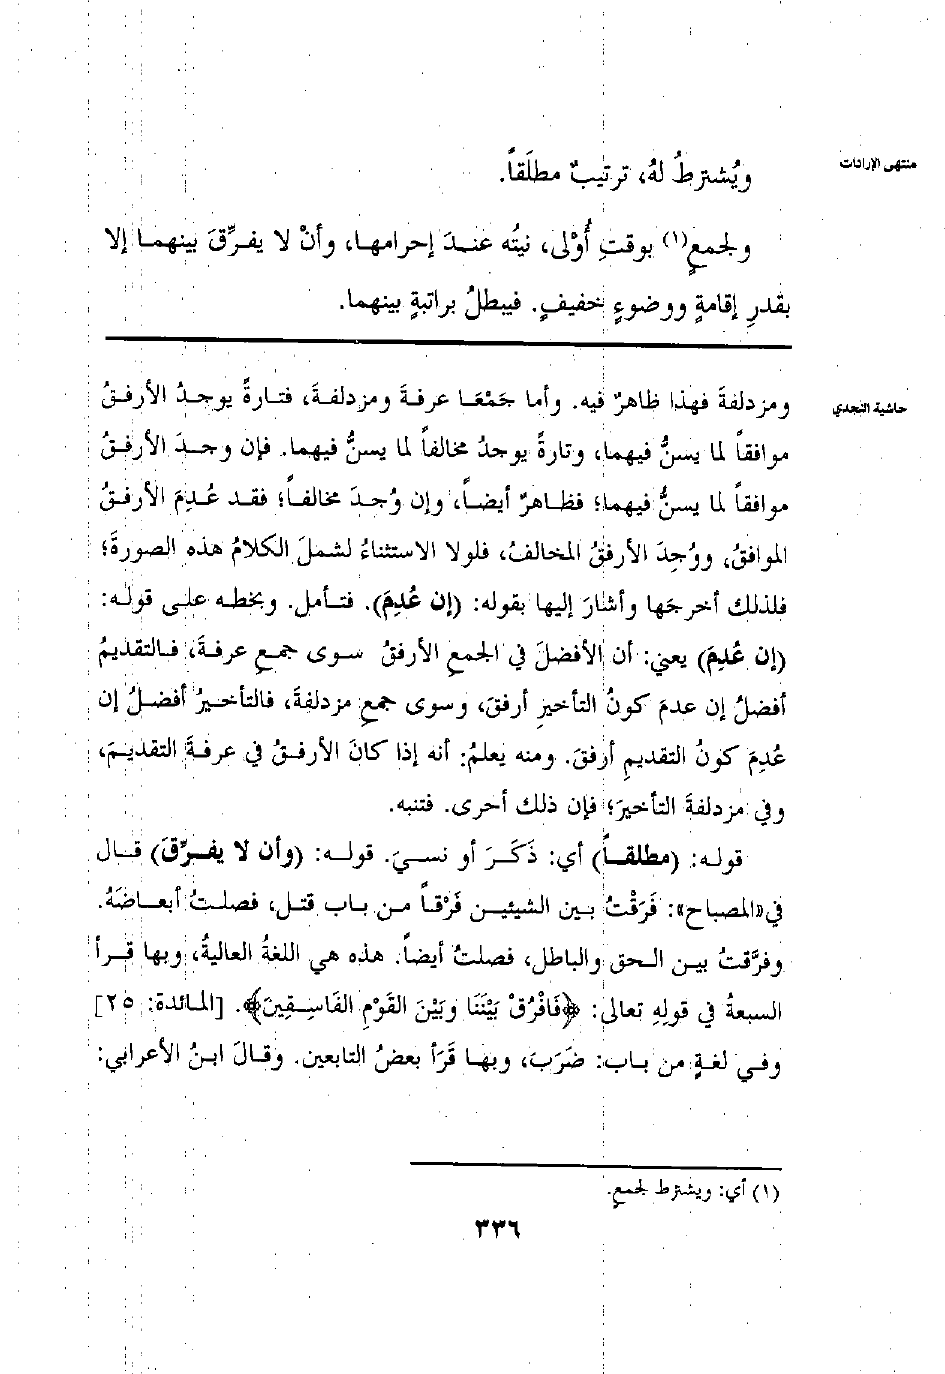 منتهى الإرادات
ويُشترطُ لهُ، ترتيبٌ مطلَقاً.
ولجمعٍ(١) بوقتِ أُوْلى، نيتُه عندَ إحرامها، وأنْ لا يفرِّقَ بينهما إلا
بقدرِ إقامةٍ ووضوءٍ خفيفٍ. فيبطلُ براتبةٍ بينهما.
حاشية النجدي
ومزدلفةَ فهذا ظاهرٌ فيه. وأما جَمْعَا عرفةَ ومزدلفةَ، فتارةً يوجدُ الأرفقُ
موافقاً لما يسنُّ فيهما، وتارةً يوجدُ مخالفاً لما يسنُّ فيهما. فإن وجدَ الأرفقُ
موافقاً لما يسنُّ فيهما؛ فظاهرٌ أيضاً، وإن وُجدَ مخالفاً؛ فقد عُدِمَ الأرفقُ
الموافقُ، ووُجِدَ الأرفقُ المخالفُ، فلولا الاستثناءُ لشملَ الكلامُ هذه الصورةَ؛
فلذلك أخرجَها وأشارَ إليها بقوله: (إن عُدِمَ). فتأمل. وبخطه على قوله:
(إن عُدِمَ) يعني: أن الأفضلَ في الجمع الأرفقُ سوى جمعِ عرفةَ، فالتقديمُ
أفضلُ إن عدمَ كونُ التأخيرِ أرفقَ، وسوى جمعِ مزدلفةَ، فالتأخيرُ أفضلُ إن
عُدِمَ كونُ التقديمِ أرفقَ. ومنه يعلمُ: أنه إذا كانَ الأرفقُ في عرفةَ التقديمَ،
وفي مزدلفةَ التأخيرَ؛ فإن ذلك أحرى. فتنبه.
قوله: (مطلقاً) أي: ذَكَرَ أو نسيَ. قوله: (وأن لا يفرِّقَ) قال
في«المصباح»: فَرَقْتُ بين الشيئين فَرْقاً من باب قتل، فصلتُ أبعاضَهُ.
وفرَّقتُ بين الحق والباطل، فصلتُ أيضاً. هذه هي اللغةُ العاليةُ، وبها قرأ
السبعةُ في قولِهِ تعالى: ﴿فَافْرُقْ بَيْنَنَا وبَيْنَ القَوْمِ الفَاسِقِينَ﴾. [المائدة: ٢٥]
وفي لغةٍ من باب: ضَرَبَ، وبها قَرَأ بعضُ التابعين. وقالَ ابنُ الأعرابي:
(١) أي: ويشترط لجمعٍ.
٣٣٦